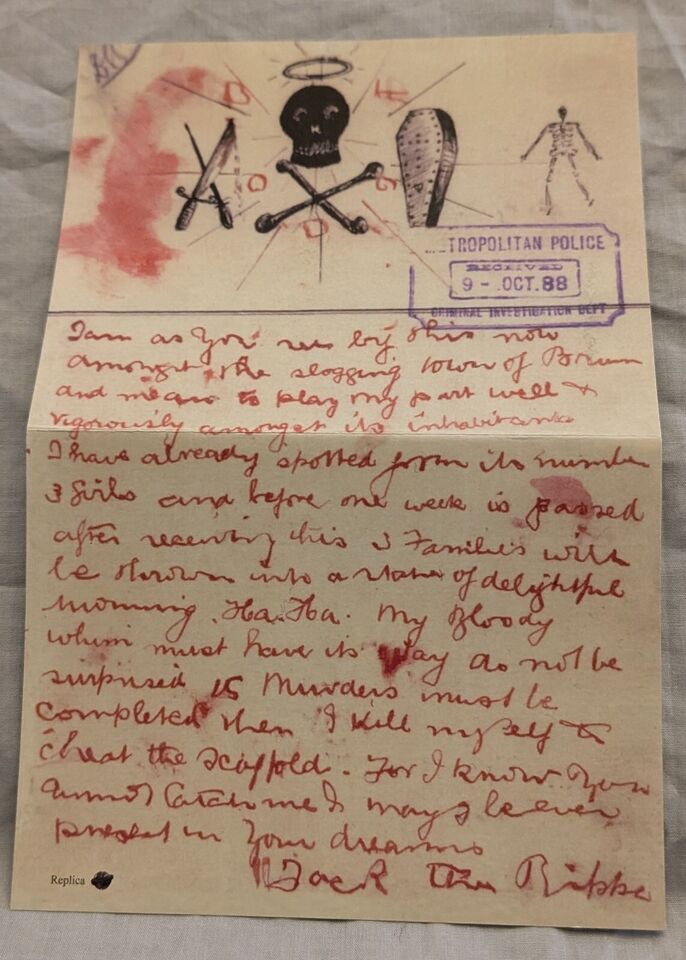 TROPOLITAN POLICE
RECEIVED
9 - .OCT.88
CRIMINAL INVESTIGATION DEPT
I am as you see by this now
amongst the slogging town of Brum
and mean to play my part well &
vigorously amongst its inhabitants
I have already spotted from its number
3 girls and before one week is passed
after receiving this 3 Families will
be thrown into a state of delightful
mourning. Ha. Ha. My Bloody
whim must have its way do not be
surprised 15 Murders must be
completed then I kill myself &
cheat the scaffold. For I know you
cannot Catch me & may I be ever
present in your dreams
Jack The Ripper
Replica